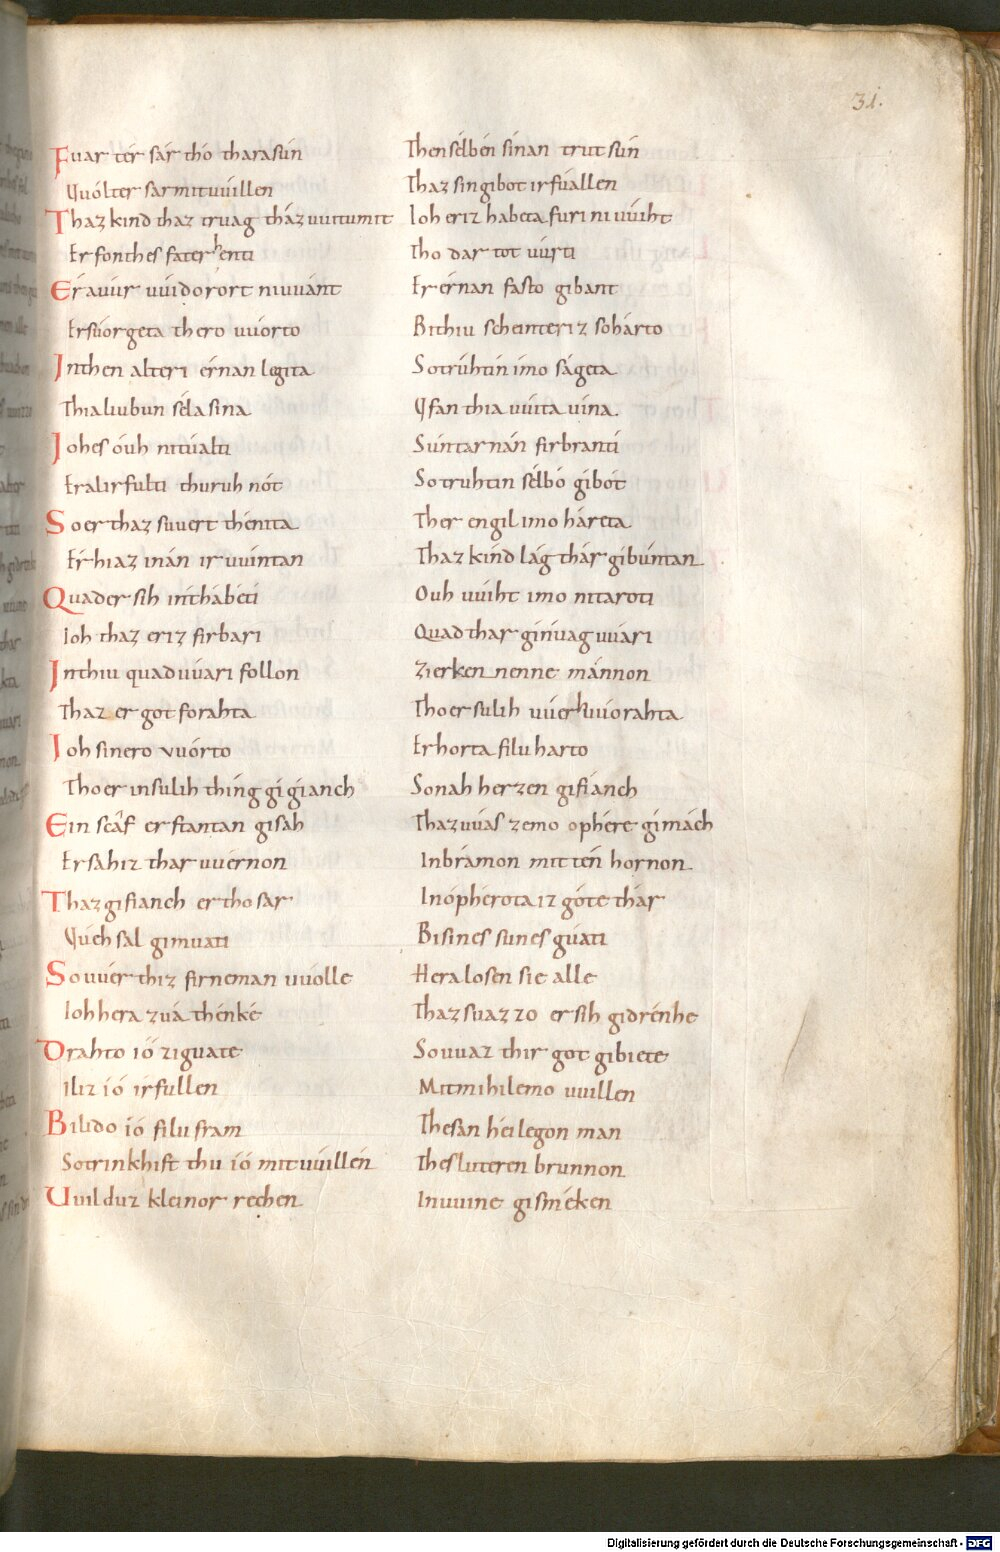 31.
Fuar tér sár thó tharasún Then sélbén sínan trut sún
Vuólter sar mit uuíllen Thaz sin gibot irfúallen
Thaz kind thaz truag tház uuitu mit Ioh er iz habeta furi niuuíht
Er fon thes fater henti Tho dar tot uúrti
Er áuur uuidorort niuuánt Er érnan fasto gibant
Er súorgeta thero uuórto Bithiu scheinter iz so hárto
In then alteri érnan legita So trúhtin ímo ságeta
Thia liubun séla sina Vfan thia uuita uína.
Ioh es óuh ni tuálti Súntar nán firbranti
Er al irfulti thuruh nót So truhtin sélbo gibót
So er thaz suuert thénita Ther engil imo háreta
Ér hiaz inán iruuíntan Thaz kínd lág thár gibúntan
Quad er sih in thábeti Ouh uuiht imo ni taroti
Ioh thaz er iz firbari Quad thar ginúag uuári
In thiu quad uuari follon Zi erkennenne mánnon
Thaz er got forahta Tho er sulih uuerk uuórahta
Ioh sinero uuórto Er horta filu harto
Tho er in sulih thíng gigianch So nah herzen gifianch
Ein scáf er stantan gisah Thaz uuás zemo ophére gimách
Er sah iz thar uuérnon In brámon mit tén hornon
Thaz gifianch er tho sar In ópherota iz góte thár
Vuehsal gimuati Bi sines sunes guati
So uuér thiz firneman uuolle Hera losen sie alle
Ioh hera zuá thénké Thaz suazzo er sih gidrénke
Drahto ió zi guate So uuaz thir got gibiete
Ili iz ió irfullen Mit mihilemo uuillen
Bilido ió filu fram Thesan héilegon man
So trinkhist thu ió mit uuíllen Thes luteren brunnon
Uuil du z kleinor rechen In uuine gisméken
Digitalisierung gefördert durch die Deutsche Forschungsgemeinschaft - DFG